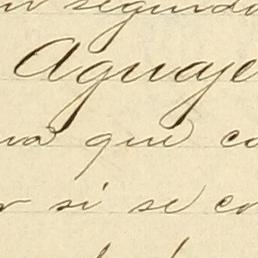 segundo
Aguaje
que co
si se co